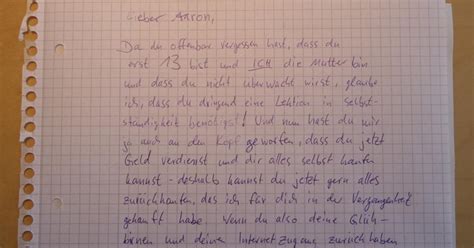 Lieber Aaron,
Da du offenbar vergessen hast, dass du
erst 13 bist und ICH die Mutter bin
und dass du nicht überwacht wirst, glaube
ich, dass du dringend eine Lektion in Selbst-
ständigkeit benötigst! Und nun hast du mir
ja auch an den Kopf geworfen, dass du jetzt
Geld verdienst und dir alles selbst kaufen
kannst - deshalb kannst du jetzt gern alles
zurückkaufen, das ich für dich in der Vergangenheit
gekauft habe. Wenn du also deine Glüh-
birnen und deinen Internetzugang zurück haben